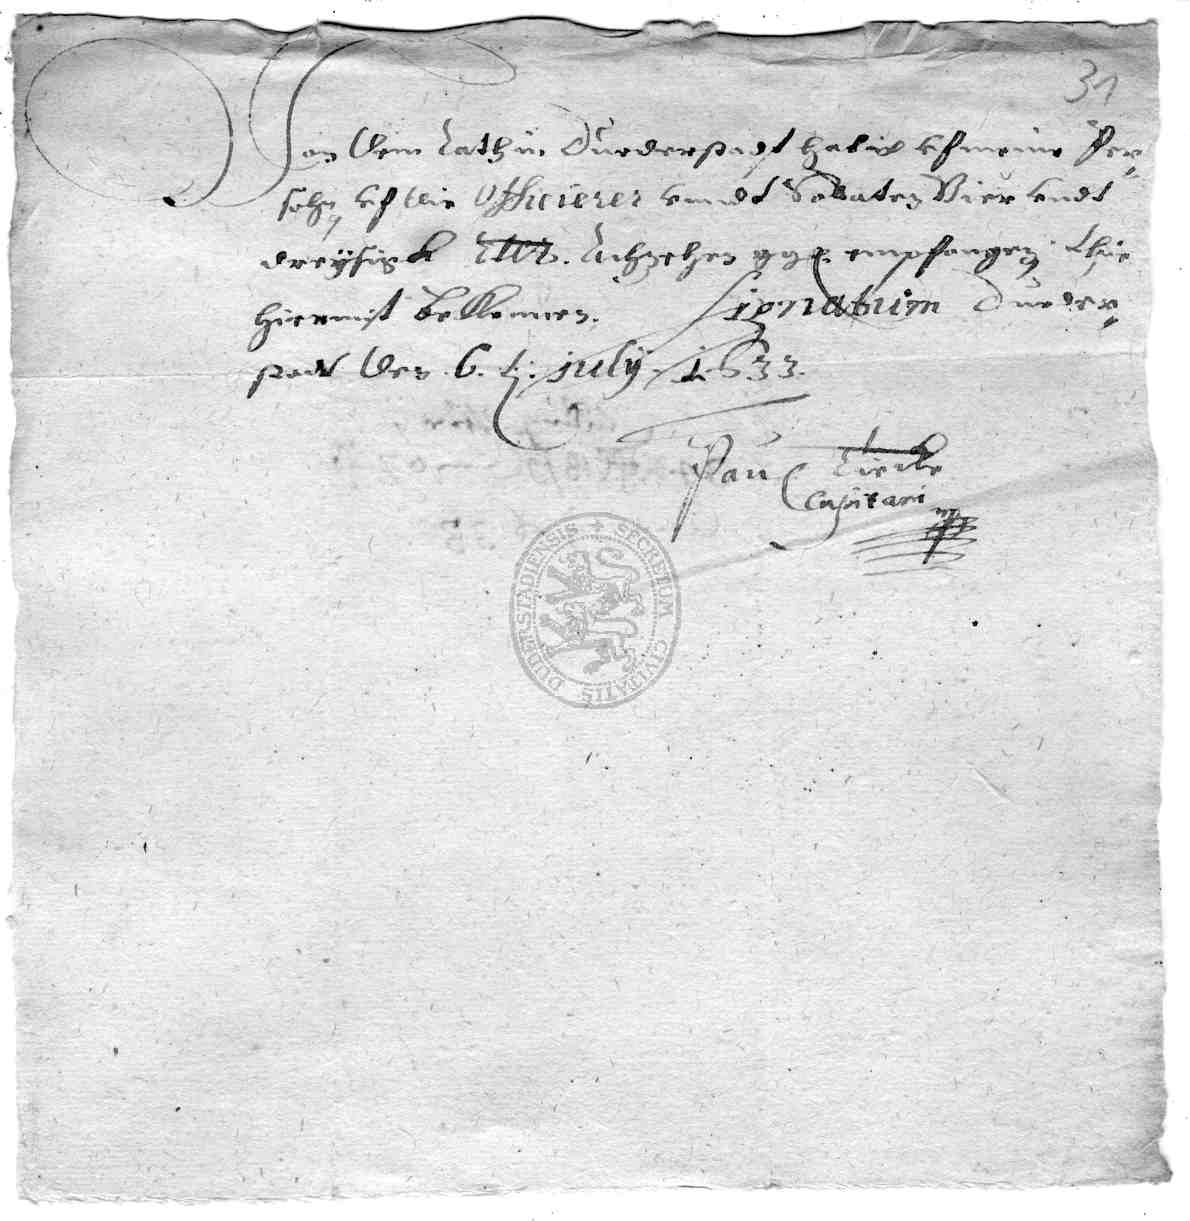 31
Von dem Rath in Duederstadt hab ich uf meine Per-
sohn, uf die Officierer unndt Soldaten Vier undt
dreysigk Thlr. Achzehen ggr. empfangen, thue
hiermit bekennen. Signatum Dueder-
stadt den 6. t. July. 1633.
Paul
Capitain
SECRETUM CIVITATIS DUDERSTADIENSIS